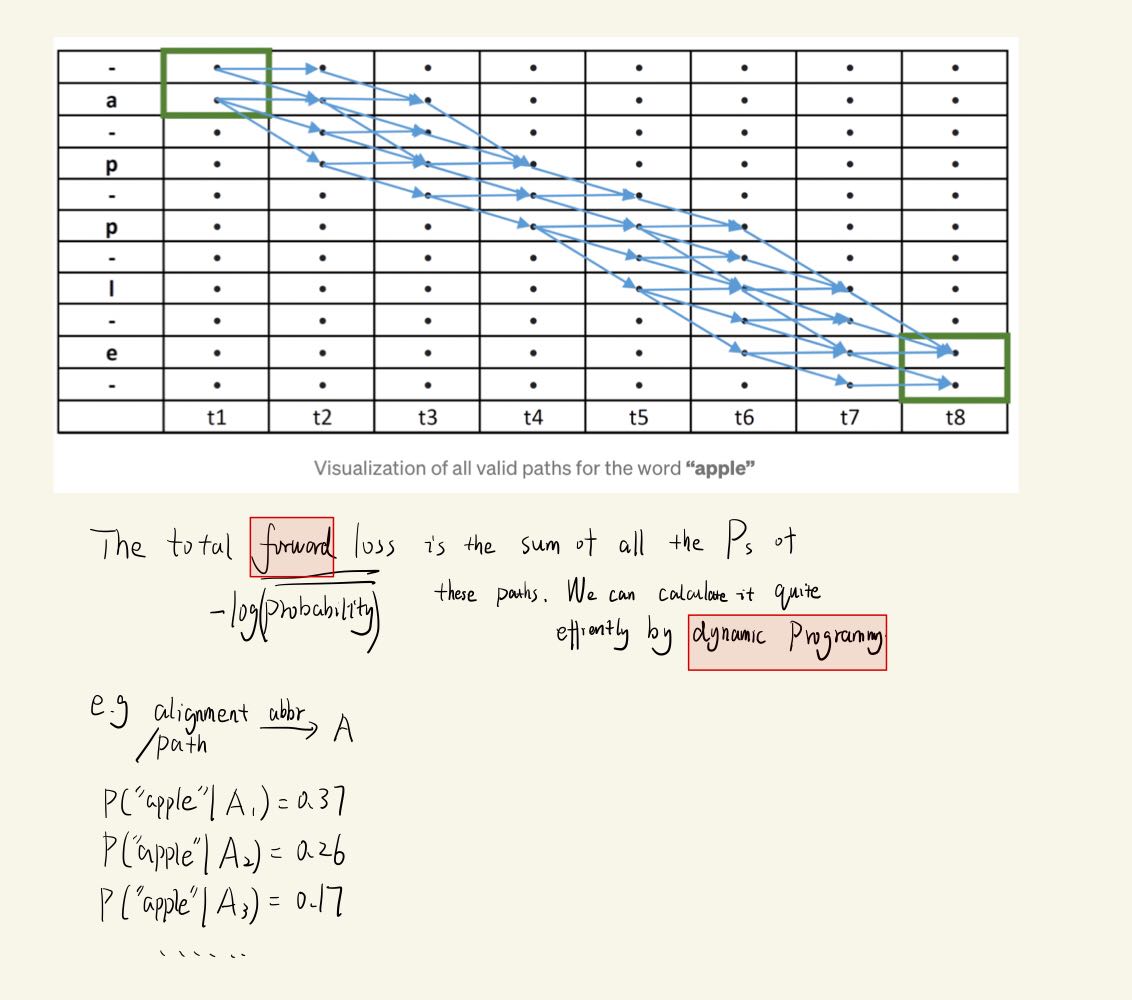 -
a
-
p
-
p
-
l
-
e
-
t1 t2 t3 t4 t5 t6 t7 t8
Visualization of all valid paths for the word “apple”
The total forward loss is the sum of all the Ps of
-log(probability) these paths. We can calculate it quite
effiently by dynamic Programing
e.g alignment abbr → A
/path
P("apple"| A₁) = 0.37
P("apple"| A₂) = 0.26
P("apple"| A₃) = 0.17
......